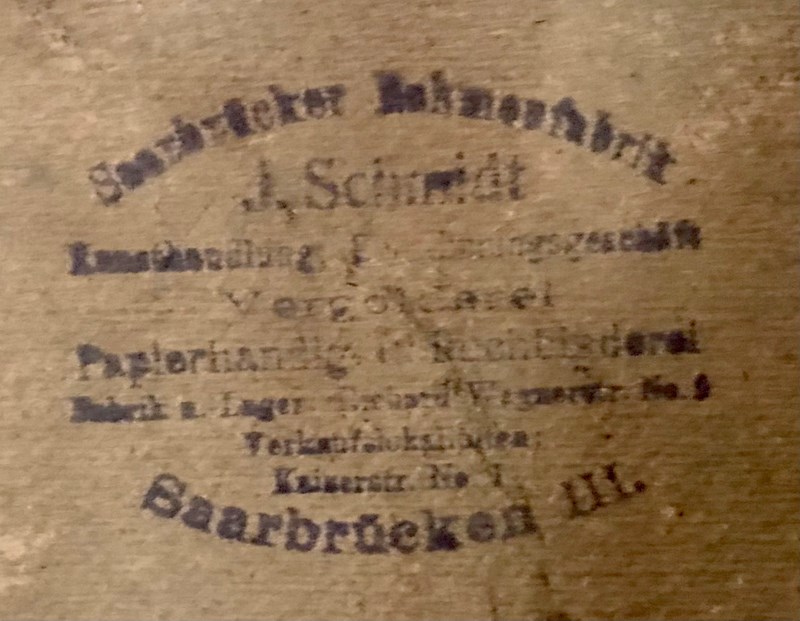 Saarbrücker Rahmenfabrik
J. Schmidt
Kunsthandlung, Einrahmungsgeschäft
Vergolderei
Papierhandlg. Buchbinderei
Fabrik u. Lager: Richard Wagnerstr. No. 9
Verkaufslokalitäten:
Kaiserstr. No
Saarbrücken III.